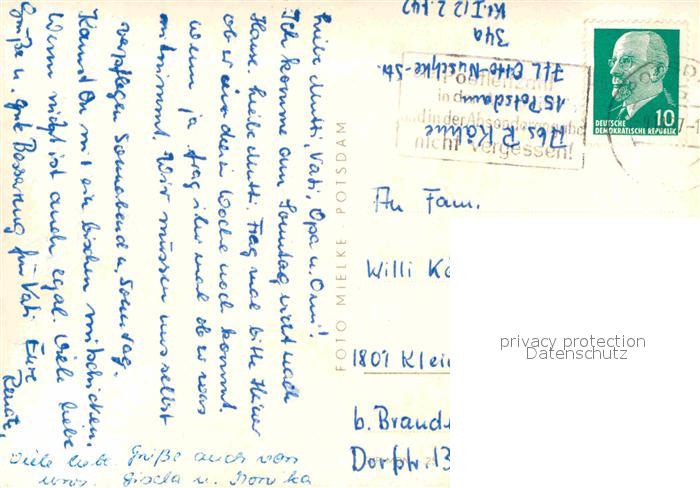 Liebe Mutti, Vati, Opa u. Omi!
Ich komme am Sonntag nicht nach
Hause. Liebe Mutti. Frag mal bitte
ob er in dein Woche noch kommt.
wenn ja frag ihn mal ob er was
mitnimmt. Wir müssen uns selbst
verpflegen Sonnabend u. Sonntag.
Kannst Du mir ein bischen mitschicken.
Wenn nicht ist auch egal. Viele liebe
Grüße u. gute Besserung für Vati Eure
Renate.
Viele liebe Grüße auch von
uns. Gisela u. Monika
FOTO MIELKE · POTSDAM
Abs. R. Kähne
15 Potsdam
7/2 Otto-Nuschke-Str.
34a
Postfachzahl
in der
und in der Absenderangabe
nicht vergessen!
10
DEUTSCHE
DEMOKRATISCHE REPUBLIK
An Fam.
Willi Kä
1801 Klein
b. Brand
Dorfstr. 13
privacy protection
Datenschutz